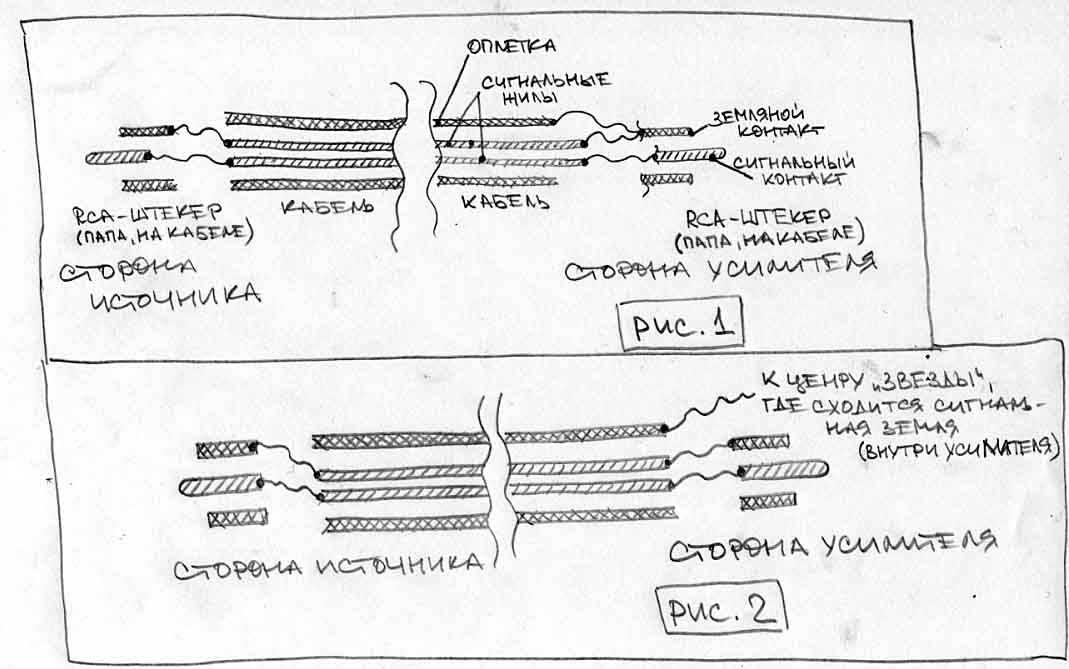 ОПЛЕТКА
СИГНАЛЬНЫЕ
ЖИЛЫ
ЗЕМЛЯНОЙ
КОНТАКТ
СИГНАЛЬНЫЙ
КОНТАКТ
КАБЕЛЬ
КАБЕЛЬ
RCA-ШТЕКЕР
(ПАПА, НА КАБЕЛЕ)
СТОРОНА
ИСТОЧНИКА
RCA-ШТЕКЕР
(ПАПА, НА КАБЕЛЕ)
СТОРОНА УСИЛИТЕЛЯ
РИС. 1
К ЦЕНРУ „ЗВЕЗДЫ",
ГДЕ СХОДИТСЯ СИГНАЛЬ-
НАЯ ЗЕМЛЯ
(ВНУТРИ УСИЛИТЕЛЯ)
СТОРОНА ИСТОЧНИКА
СТОРОНА УСИЛИТЕЛЯ
РИС. 2